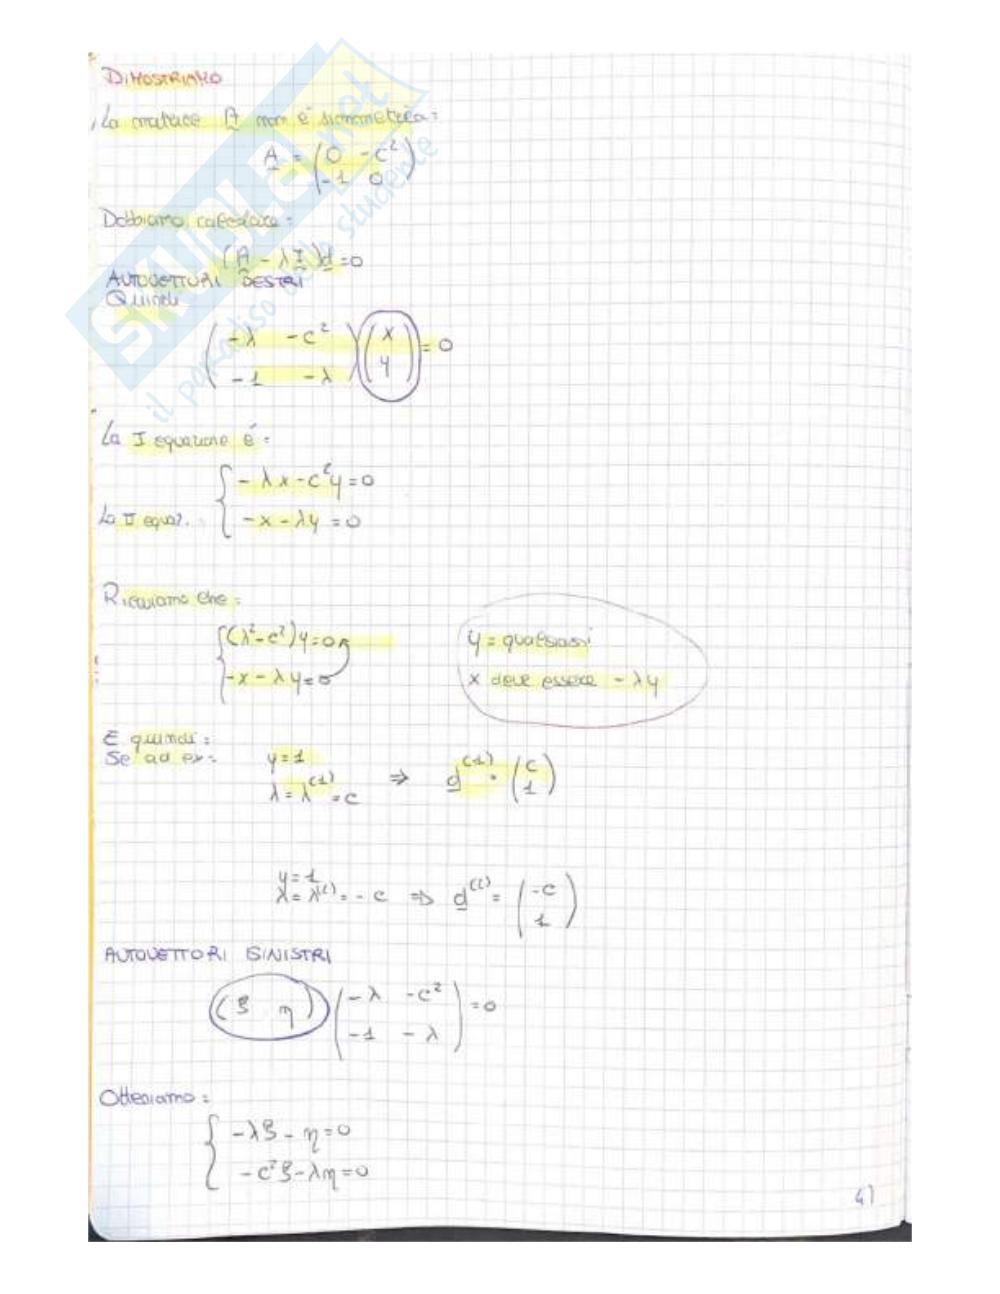 DIMOSTRIAMO
La matrice A non è simmetrica:
A = (0 -c²
-1 0)
Dobbiamo calcolare:
(A - λI)d = 0
AUTOVETTORI DESTRI
Quindi
(-λ -c²
-1 -λ) (x
y) = 0
La I equazione è:
{ -λx - c²y = 0
La II equaz. -x - λy = 0
Ricaviamo che:
{ (λ² - c²)y = 0
-x - λy = 0
y = qualsiasi
x deve essere - λy
E quindi:
Se ad es:
y = 1
λ = λ⁽¹⁾ = c ⇒ d⁽¹⁾ = (c
1)
y = 1
λ = λ⁽²⁾ = - c ⇒ d⁽²⁾ = (-c
1)
AUTOVETTORI SINISTRI
(ξ η) (-λ -c²
-1 -λ) = 0
Otteniamo:
{ -λξ - η = 0
-c²ξ - λη = 0
41
SKUOLA.net
il paradiso dello studente